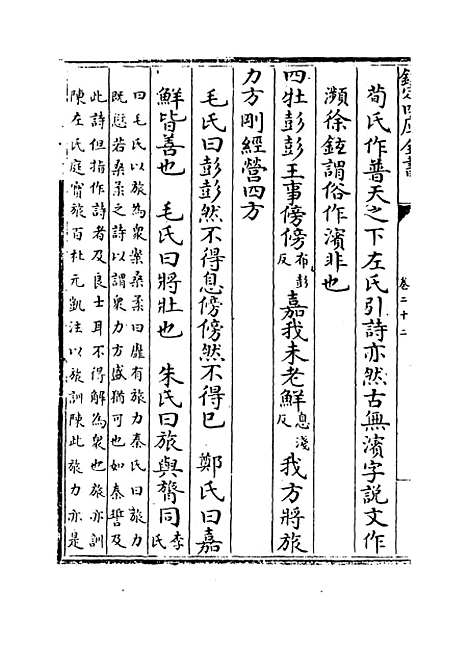 欽定四庫全書
卷二十二
荀氏作普天之下左氏引詩亦然古無濱字説文作
瀕徐鉉謂俗作濱非也
四牡彭彭王事傍傍布彭反嘉我未老鮮息淺反我方將旅
力方剛經營四方
毛氏曰彭彭然不得息傍傍然不得已 鄭氏曰嘉
鮮皆善也 毛氏曰將壯也 朱氏曰旅與膂同李氏
曰毛氏以旅為衆案桑柔曰靡有旅力秦氏曰旅力
既愆若桑柔之詩以謂衆力方盛猶可也如秦誓及
此詩但指作詩者及良士耳不得解為衆也旅亦訓
陳左氏庭實旅百杜元凱注以旅訓陳此旅力亦是